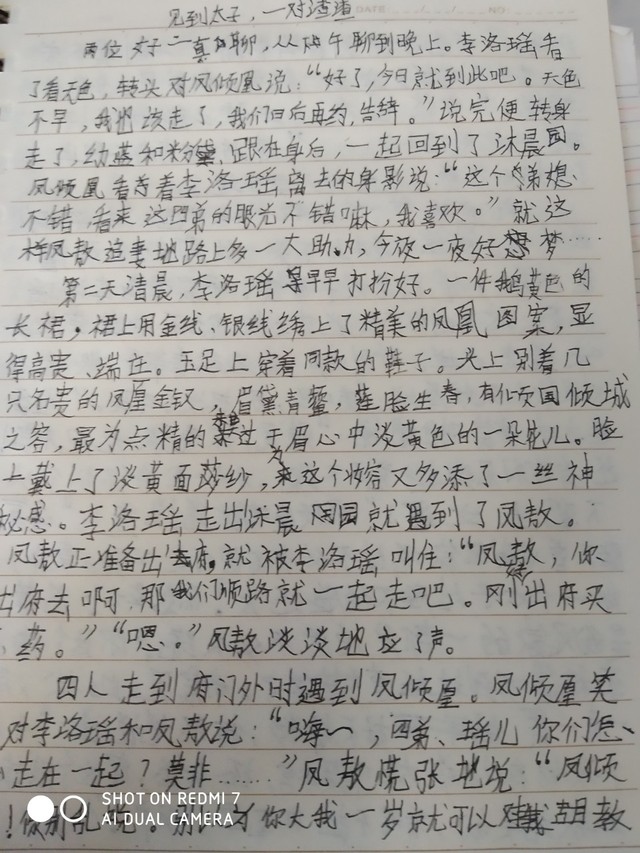 见到太子，一对渣渣
两位女子一直闲聊，从晌午聊到晚上。李洛瑶看
了看天色，转头对凤倾凰说：“好了，今日就到此吧。天色
不早，我也该走了，我们日后再约，告辞。”说完便转身
走了，幼蓝和粉黛跟在身后，一起回到了沐晨园。
凤倾凰看着李洛瑶离去的身影说：“这个弟媳
不错，看来这四弟的眼光不错嘛，我喜欢。”就这
样凤敖追妻地路上多一大助力，今夜一夜好梦……
第二天清晨，李洛瑶早早打扮好。一件鹅黄色的
长裙，裙上用金线、银线绣上了精美的凤凰图案，显
得高贵、端庄。玉足上穿着同款的鞋子。头上别着几
只名贵的凤凰金钗，眉黛青颦，莲脸生春，有倾国倾城
之容，最为点精的莫过于眉心中淡黄色的一朵花儿。脸
上戴上了淡黄面莎纱，为这个妆容又多添了一丝神
秘感。李洛瑶走出沐晨园就遇到了凤敖。
凤敖正准备出府，就被李洛瑶叫住：“凤敖，你
出府去啊，那我们顺路就一起走吧。刚出府买
药。”“嗯。”凤敖淡淡地应了声。
四人走到府门外时遇到凤倾凰。凤倾凰笑
对李洛瑶和凤敖说：“嗨～，四弟、瑶儿你们怎
走在一起？莫非……”凤敖慌张地说：“凤倾
！你别乱说。别以为你大我一岁就可以对我
SHOT ON REDMI 7
AI DUAL CAMERA